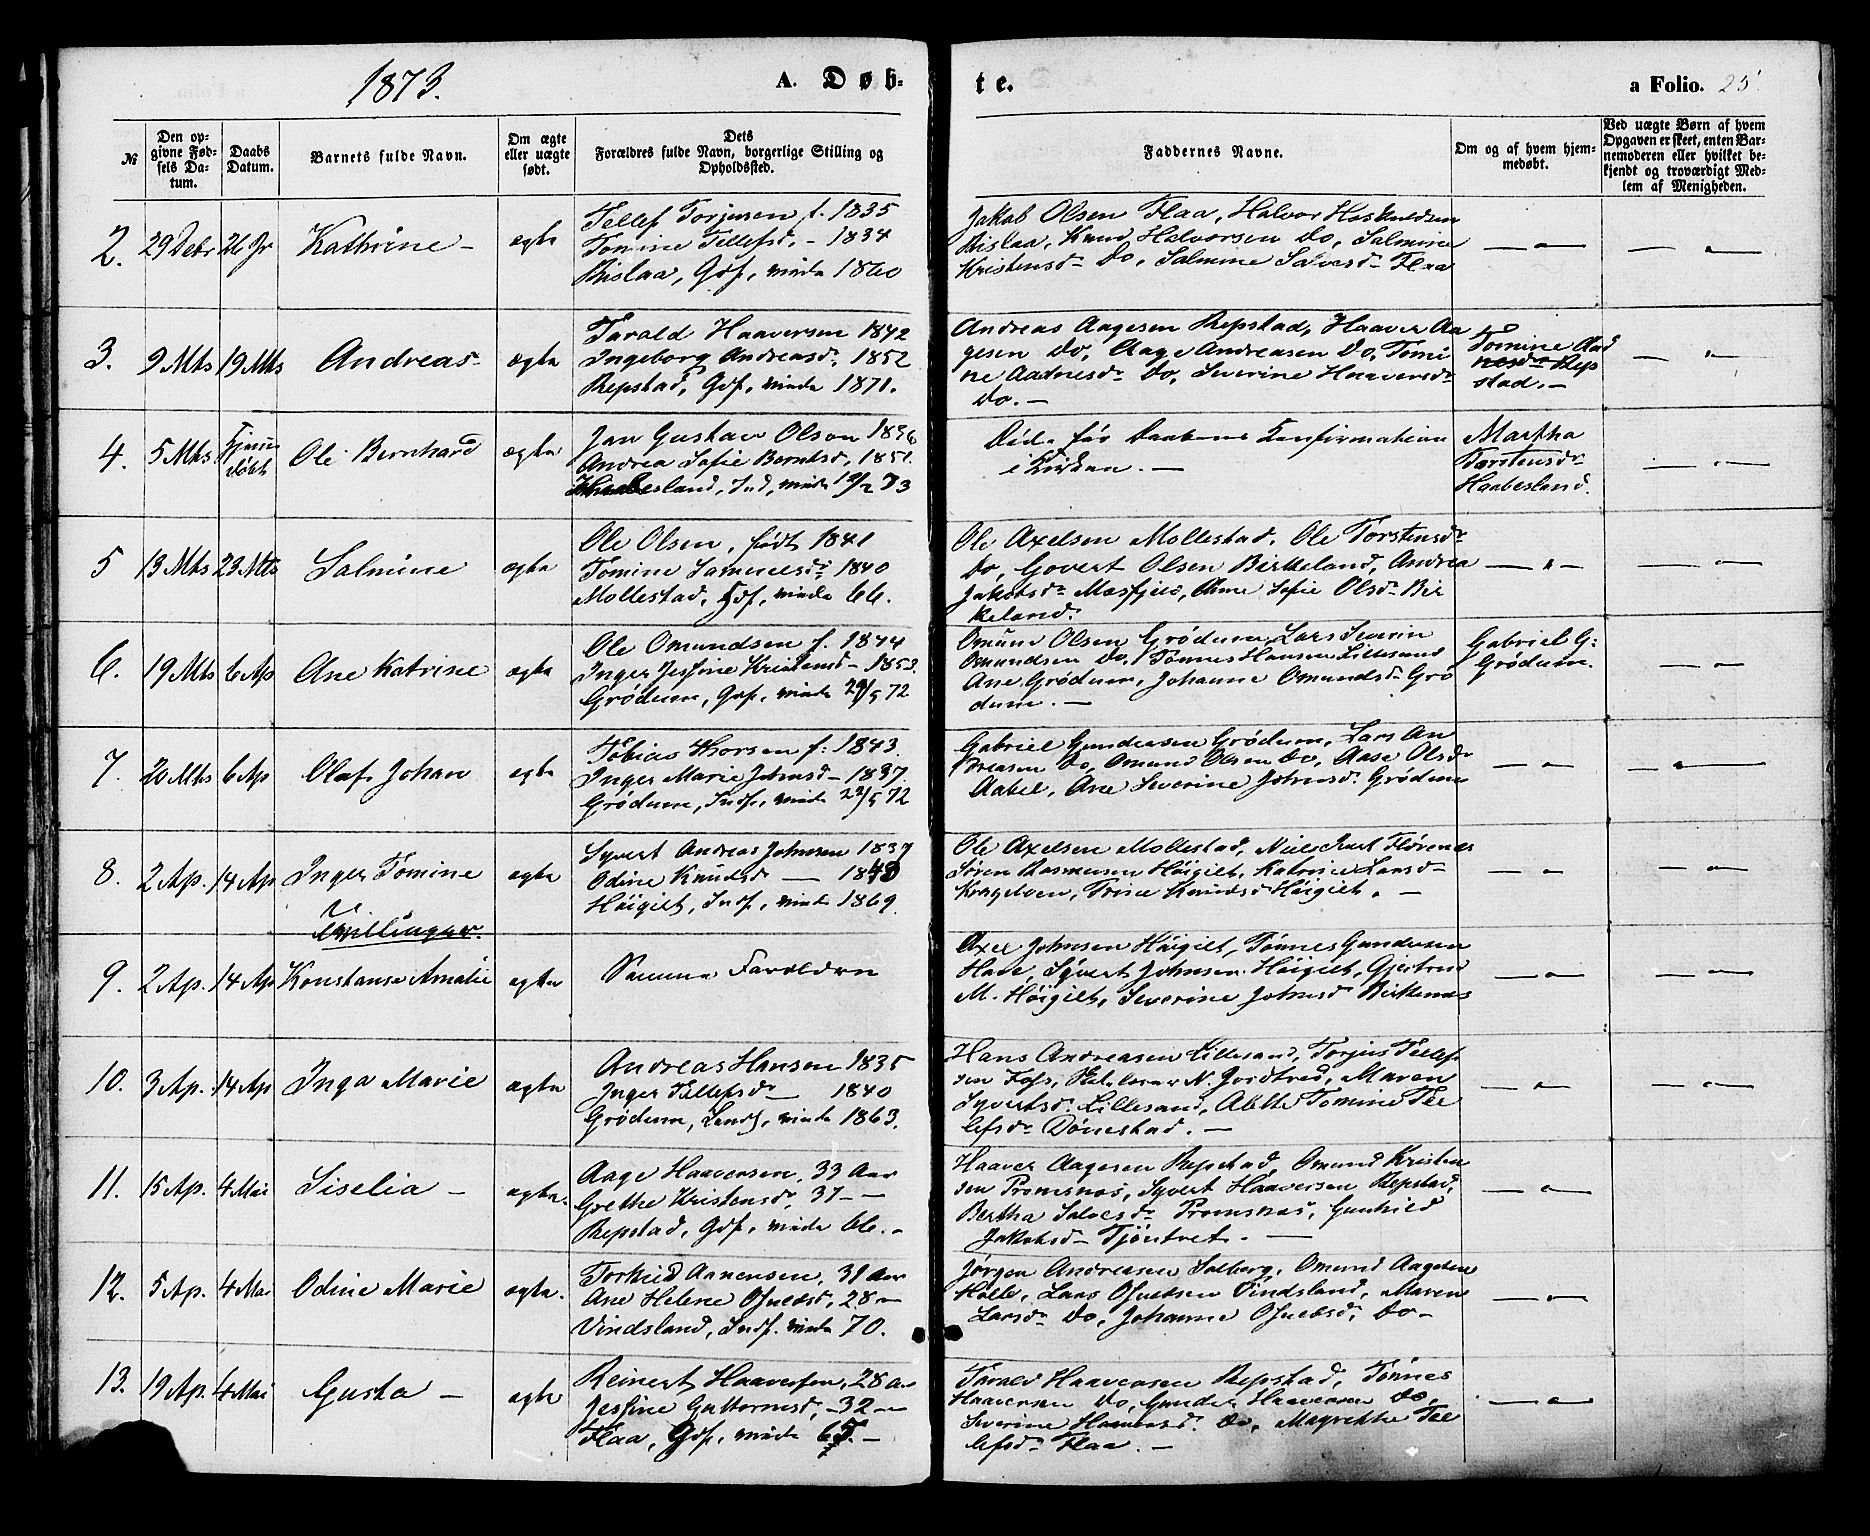 1873.
A. Døb-
te.
a Folio. 25
№
Den op-
givne Fød-
sels Da-
tum.
Daabs
Datum.
Barnets fulde Navn.
Om ægte
eller uægte
født.
Dets
Forældres fulde Navn, borgerlige Stilling og
Opholdssted.
Faddernes Navne.
Om og af hvem hjem-
medøbt.
Ved uægte Børn af hvem
Opgaven er skeet, enten Bar-
nemoderen eller hvilket be-
kjendt og troværdigt Med-
lem af Menigheden.
2. 29 Debr 26 Jr Kathrine - ægte
Tellef Torjusen f. 1835
Tomine Tellefsd. - 1834
Rislaa, Gdf, viede 1860
Jakob Olsen Flaa, Halvor Hoskuldsen
Rislaa, Knud Halvorsen Do, Salmine
Kristensd Do, Salmine Salvesd Flaa
3. 9 Mts 19 Mts Andreas- ægte
Tarald Haaversen 1842
Ingeborg Andreasd. 1852
Repstad, Gdf, viede 1871.
Andreas Aagesen Repstad, Haaver Aa
gesen Do, Aage Andreasen Do, Tomi
ne Aadnesd Do, Severine Haaversd
Do. -
Tomine Aad
nesd Rep
stad. -
4. 5 Mts Hjemme
døbt Ole Bernhard ægte
Jan Gustav Olsen 1836
Andrea Sofie Berntsd, 1851.
Haabesland, Ind, viede 12/2 73
Død før Daabens Konfirmation
i Kirken. -
Martha
Torstensd
Haabesland.
5 13 Mts 23 Mts Salmine ægte
Ole Olsen, født 1841
Tomine Samuelsd 1840
Mollestad, Gdf, viede 66.
Ole Axelsen Mollestad, Ole Torstensd
Do, Govert Olsen Birkeland, Andrea
Jakobsd Mosfjeld, Anne Sofie Olsd Bir
keland.
6. 19 Mts 6 Ap Ane Katrine ægte
Ole Omundsen f. 1844
Inger Jesfine Kristensd - 1853.
Grødum, Gdf, viede 29/5 72
Omund Olsen Grødum, Lars Severin
Omundsen Do, Tønnes Hansen Lillesand
Ane Grødum, Johanne Omundsd Grø
dum. -
Gabriel G:
Grødum.
7. 20 Mts 6 Ap Olaf Johan ægte
Tobias Thorsen f: 1843.
Inger Marie Johnsd - 1837.
Grødum, Indf, viede 22/5 72
Gabriel Gundersen Grødum, Lars An
dreasen Do, Omund Olsen Do, Aase Olsd
Aabel, Ane Severine Johnsd. Grødum
8. 2 Ap. 14 Ap Inger Tomine ægte
Syvert Andreas Johnsen 1837
Odine Knudsd - 1843
Høigilt, Indf, viede 1869.
Ole Axelsen Mollestad, Niels Juel Flørenæs
Søren Rasmussen Høigilt, Katrine Larsd
Kragelven, Trine Knudsd Høigilt. -
Tvillinger.
9. 2 Ap. 14 Ap Konstanse Amalie ægte
Samme Forældre
Axel Johnsen Høigilt, Tønnes Gundersen
Have, Syvert Johnsen Høigilt, Gjertrud
M. Høigilt, Severine Johnsd Birkenes
10. 3 Ap. 14 Ap Inga Marie ægte
Andreas Hansen 1835
Inger Tellefsd - 1840
Grødum, Lensf, viede 1863.
Hans Andreasen Lillesand, Torjus Tellef
sen Fos, N. Maren
Syvertsd. Lillesand, Alette Tomine Tel
lefsd Dønnestad. -
11. 15 Ap. 4 Mai Siselia - ægte.
Aage Haaversen, 33 Aar
Grethe Kristensd, 31 - -
Repstad, Gdf, viede 66. -
Haaver Aagesen Repstad, Omund Kristen
sen Promsnæs, Syvert Haaversen Repstad,
Bertha Salvesd Promsnæs, Gunhild
Jakobsd Tjøntvet. -
12. 5 Ap. 4 Mai Odine Marie ægte.
Torkild Aanensen, 31 Aar
Ane Helene Osuldsd, 28 -
Vindsland, Indf. viede 70.
Jørgen Andreasen Solberg, Omund Aagesen
Holle, Lars Osuldsen Vindsland, Maren
Larsd Do, Johanne Osuldsd, Do -
13. 19 Ap. 4 Mai Gusta - ægte
Reinert Haaversen, 28 a
Jesfine Guttormsd, - 32 -
Flaa, Gdf, viede 65. -
Tarald Haaversen Repstad, Tønnes
Haaversen Do, Gunder Haaversen Do,
Severine Haaversd. Do, Mayrethe Tel
lefsd Flaa. -